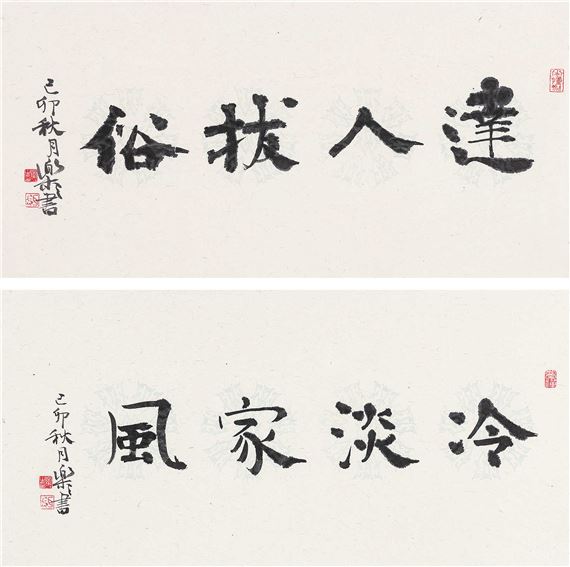 達人拔俗
己卯秋月樂書
冷淡家風
己卯秋月樂書